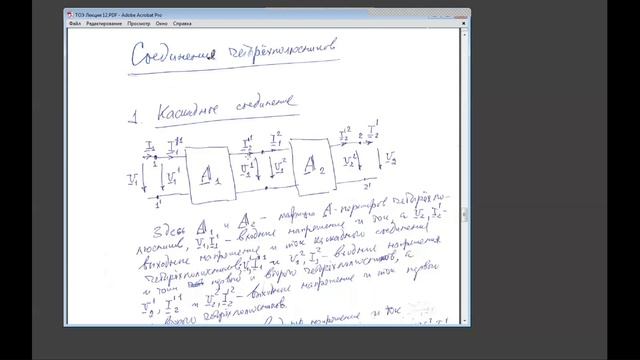 ТОЭ Лекция 12.PDF - Adobe Acrobat Pro
Файл Редактирование Просмотр Окно Справка
Соединения четырёхполюсников
1. Каскадное соединение
I₁ I₁¹ I₂¹ I₁² I₂² 2 I₂'
1
U₁ U₁¹ A₁ U₂¹ U₁² A₂ U₂² U₂
1' 2'
Здесь A₁ и A₂ - матрицы A-параметров четырёхпо-
люсников, U₁, I₁ - входные напряжение и ток, а U₂, I₂' -
выходные напряжение и ток каскадного соединения
четырёхполюсников, U₁¹, I₁¹ и U₁², I₁² - входные напряжения
и токи первого и второго четырёхполюсников, а
U₂¹, I₂'¹ и U₂², I₂'² - выходные напряжение и ток первого
и второго четырёхполюсников.
напряжение и ток